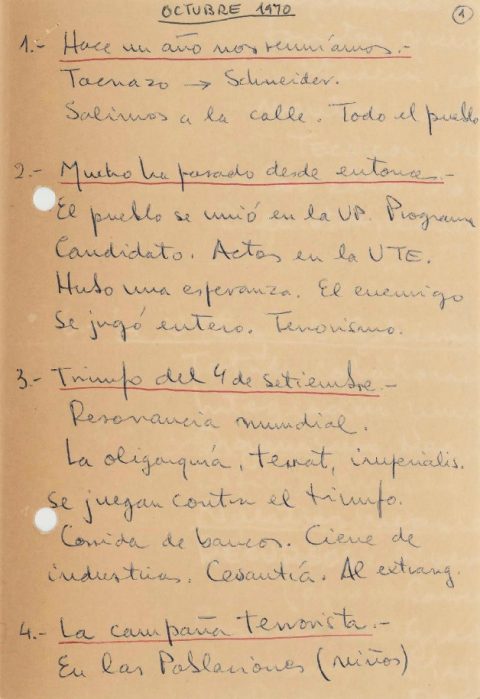 OCTUBRE 1970
1
1.- Hace un año nos reuníamos.-
Tacnazo → Schneider.
Salimos a la calle. Todo el pueblo
2.- Mucho ha pasado desde entonces.-
El pueblo se unió en la UP. Programa
Candidato. Actos en la UTE.
Hubo una esperanza. El enemigo
se jugó entero. Terrorismo.
3.- Triunfo del 4 de setiembre.-
Resonancia mundial.
La oligarquía, terrat, imperialis.
se juegan contra el triunfo.
Corrida de bancos. Cierre de
industrias. Cesantía. Al extrang.
4.- La campaña terrorista.-
En las Poblaciones (niños)